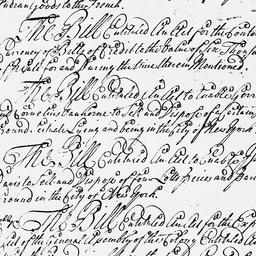 Indian goods to the French.
The Bill Entituled An Act for the
Currency of Bills of Credit to the Value of
for and During the time therein Mentioned.
The Bill Entituled An Act to Enable
and Cornelius Vanhorne to Sell and Dispose of a Certain
Ground, Scituate Lying and being in the City of New York
The Bill Entituled An Act to Enable
Davis to Sell and Dispose of four Lotts Pieces and
Ground in the City of New York.
The Bill Entituled An Act for the
Act of the General Assembly of this Colony Entituled An